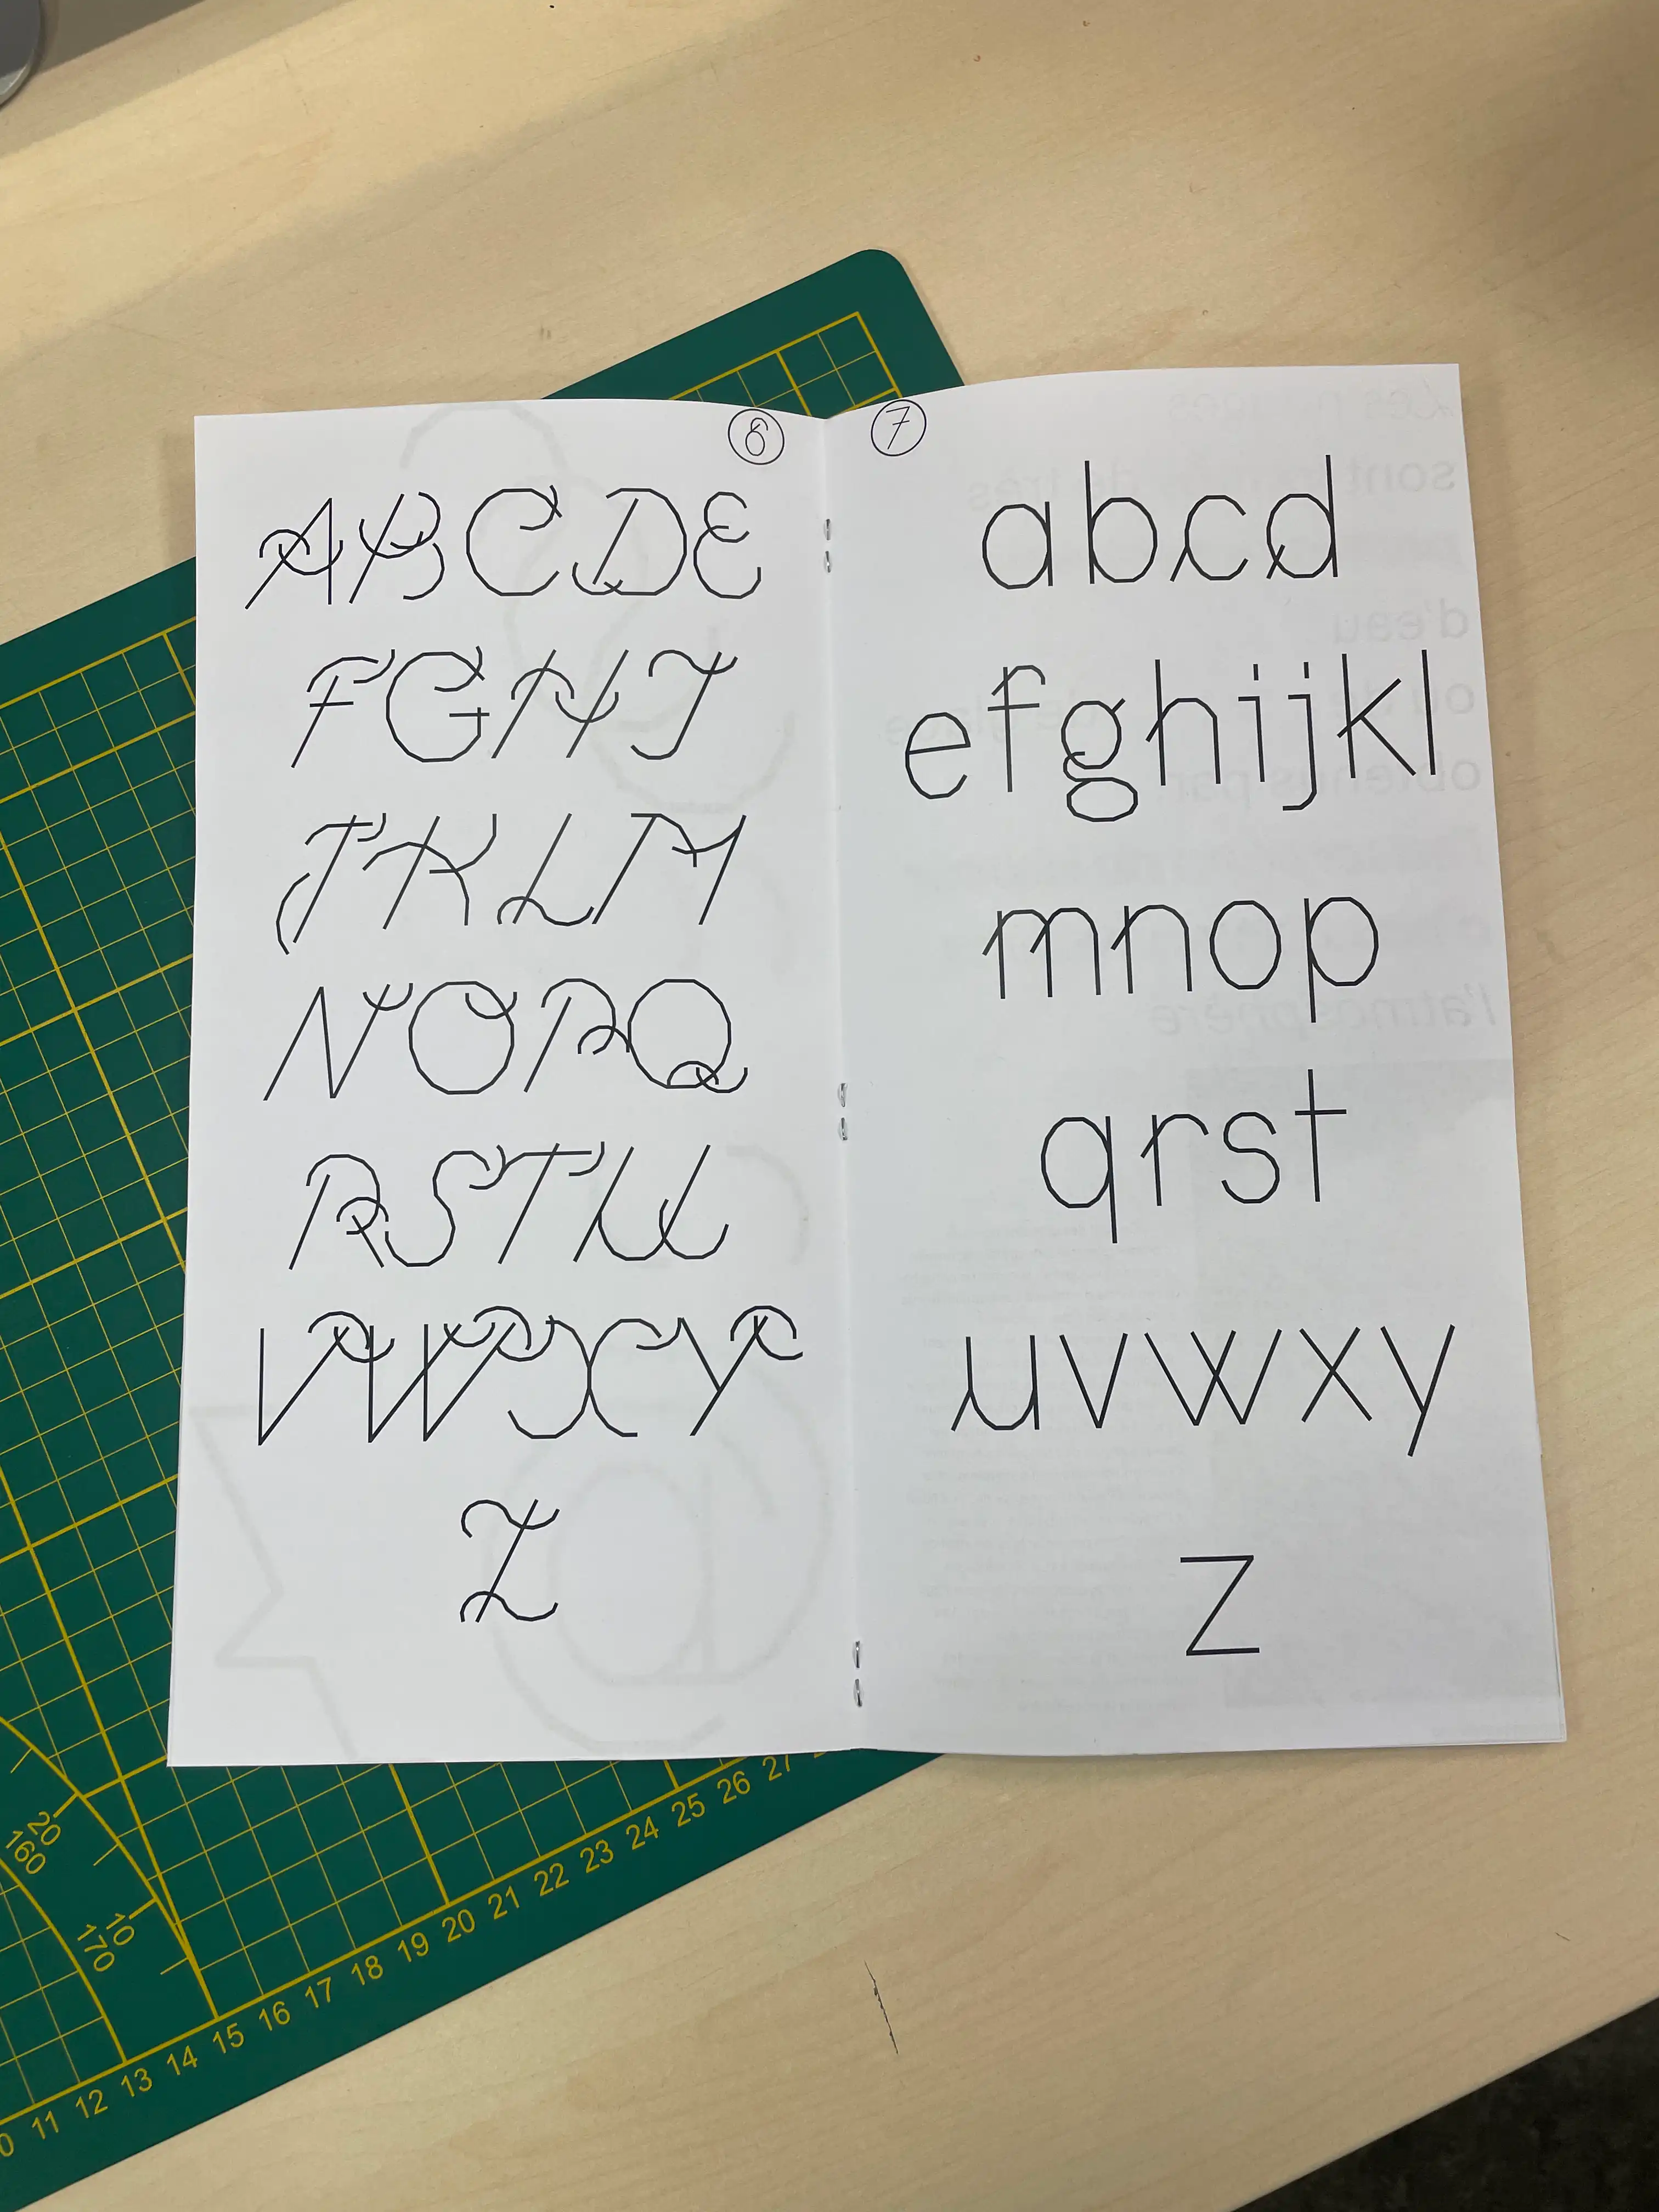 6
ABCDE
FGHI
JKLM
NOPQ
RSTU
VWXY
Z
7
abcd
efghijkl
mnop
qrst
uvwxy
z
11 12 13 14 15 16 17 18 19 20 21 22 23 24 25 26 27
20
160
10
170